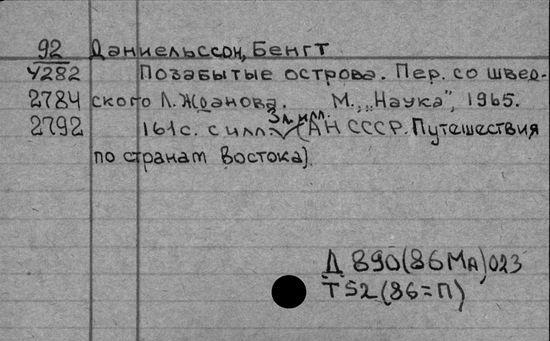 92 Даниельссон, Бенгт
4282 Позабытые острова. Пер. со швед-
2784 ского Л. Жданова. М., „Наука", 1965.
3 л. илл.
2792 161 с. с илл. (АН СССР. Путешествия
по странам Востока).
Д 890(86Ма)023
Т52(86=П)